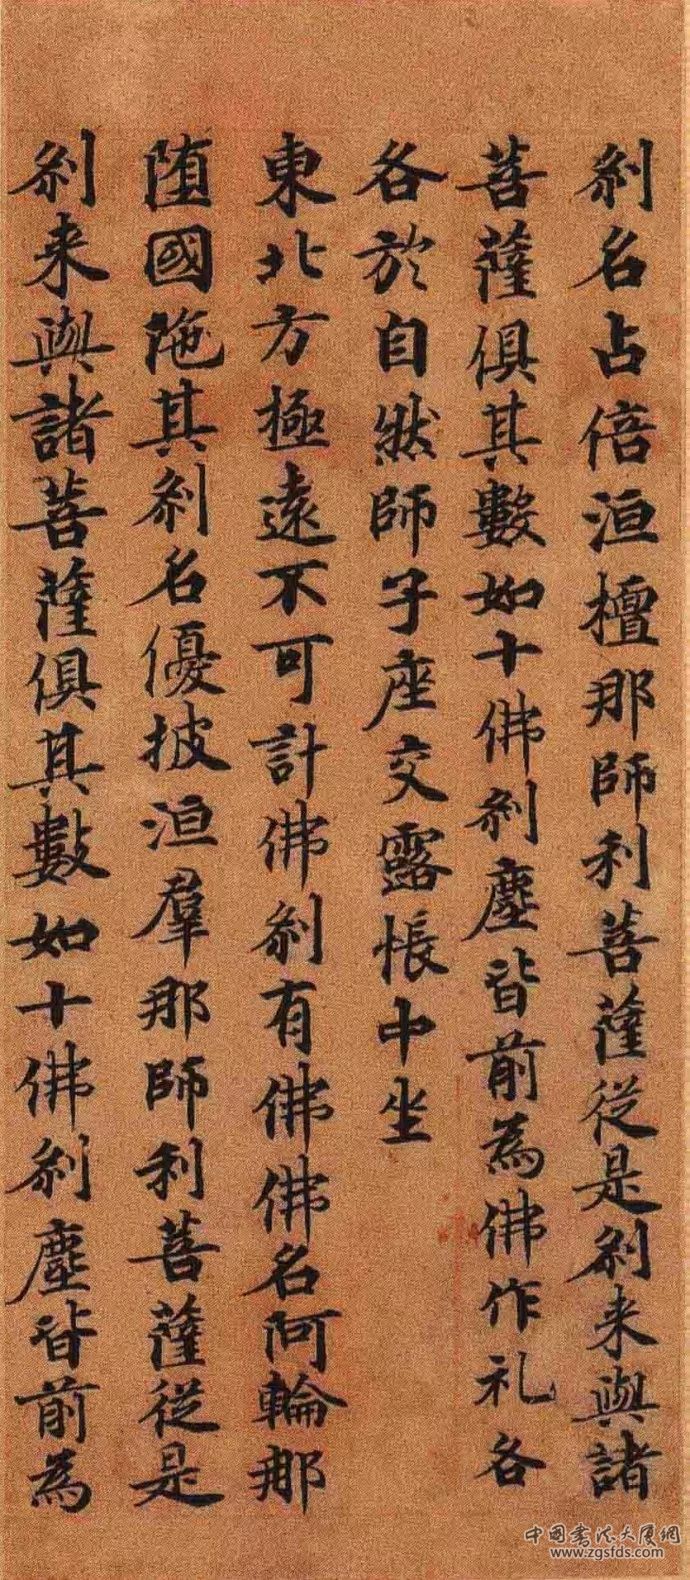 刹名占倍洹檀那師利菩薩從是刹来與諸
菩薩俱其數如十佛刹塵皆前為佛作礼各
各於自然師子座交露帳中坐
東北方極遠不可計佛刹有佛佛名阿輪那
堕國陁其刹名優披洹羣那師利菩薩從是
刹来與諸菩薩俱其數如十佛刹塵皆前為
中國書法大厦網
www.zgsfds.com